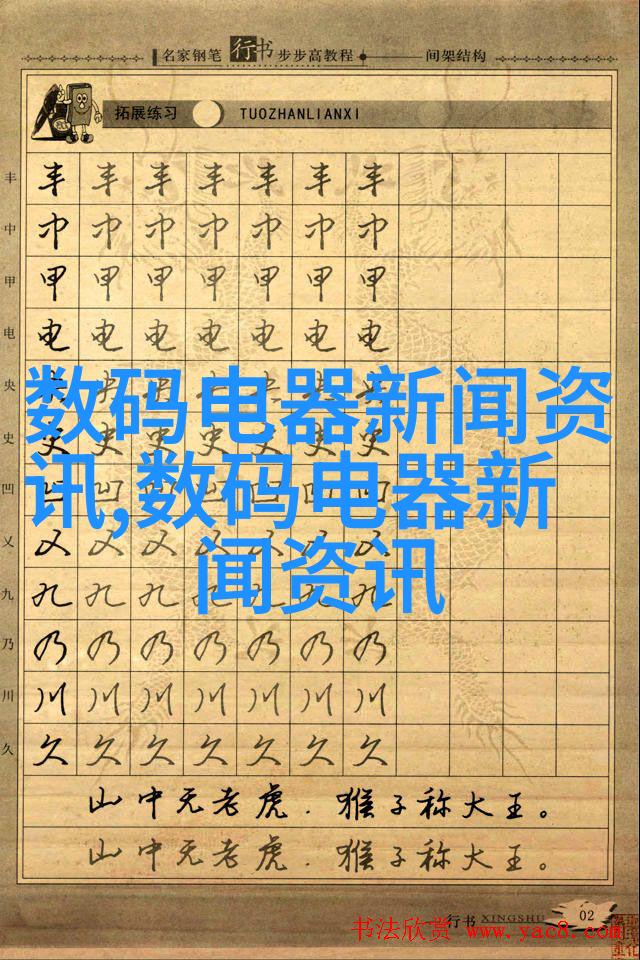 名家钢笔行书步步高教程 间架结构
拓展练习 TUOZHANLIANXI
丰 丰 丰 丰 丰 丰 丰 丰
中 中 中 中 中 中 中 中
甲 甲 甲 甲 甲 甲 甲 甲
电 电 电 电 电 电 电 电
央 央 央 央 央 央 央 央
数码电器新闻资
史 史 史 史 史 史 史 史
讯,数码电器新
凹 凹 凹 凹 凹 凹 凹 凹
乂 乂 乂 乂 乂 乂 乂 乂
闻资讯
九 九 九 九 九 九 九 九
乃 乃 乃 乃 乃 乃 乃 乃
川 川 川 川 川 川 川 川
久 久 久 久 久 久 久 久
山中无老虎.猴子称大王。
山中无老虎.猴子称大王。
行书 XINGSHU 02
书法欣赏 www.yac8.com